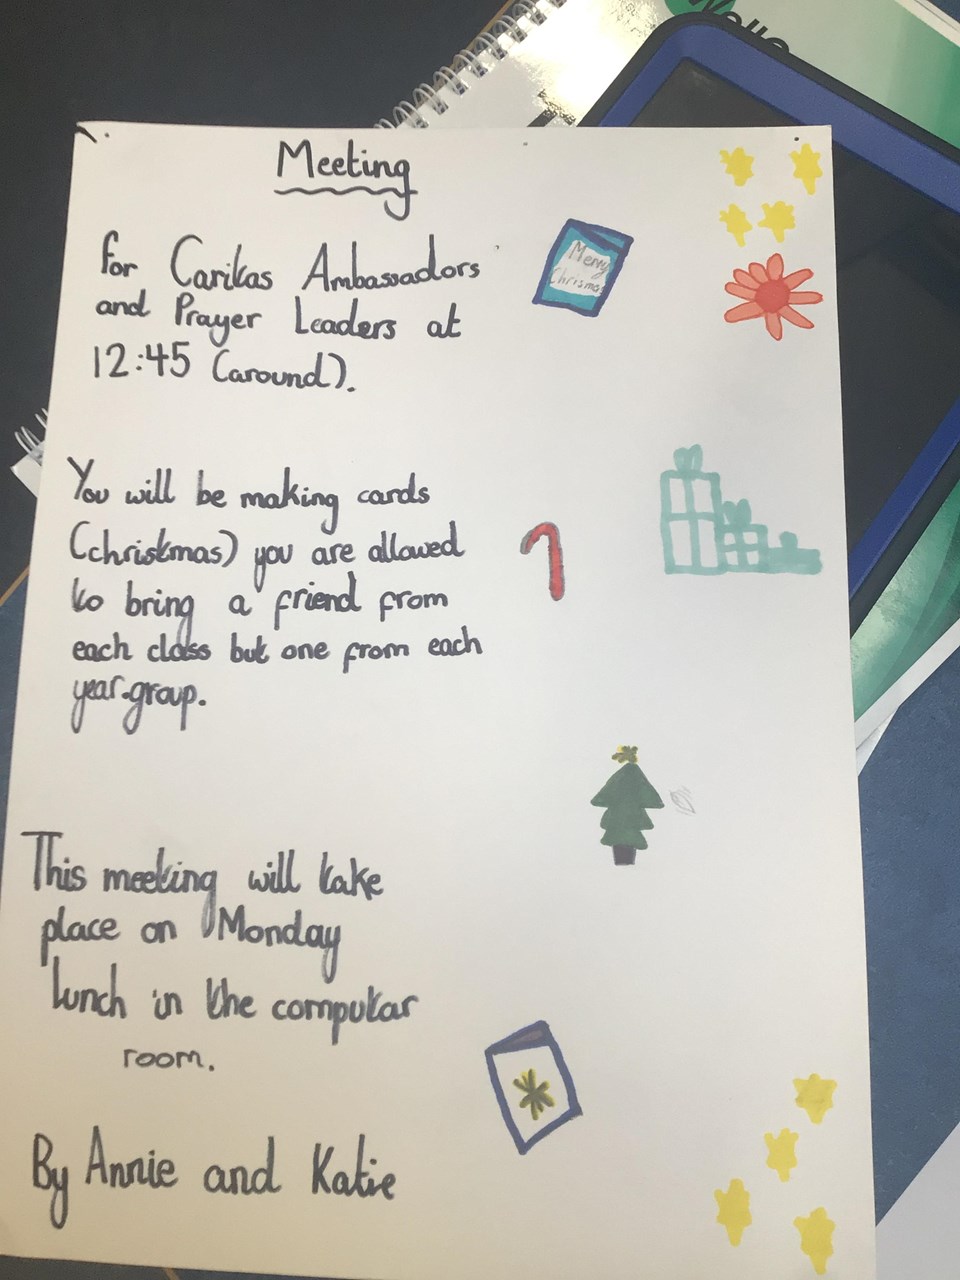 Wello
Meeting
for Caritas Ambassadors
and Prayer Leaders at
12:45 (around).
Merry
Chrismas
You will be making cards
(christmas) you are allowed
to bring a friend from
each class but one from each
year.group.
This meeting will take
place on Monday
lunch in the computar
room.
By Annie and Katie